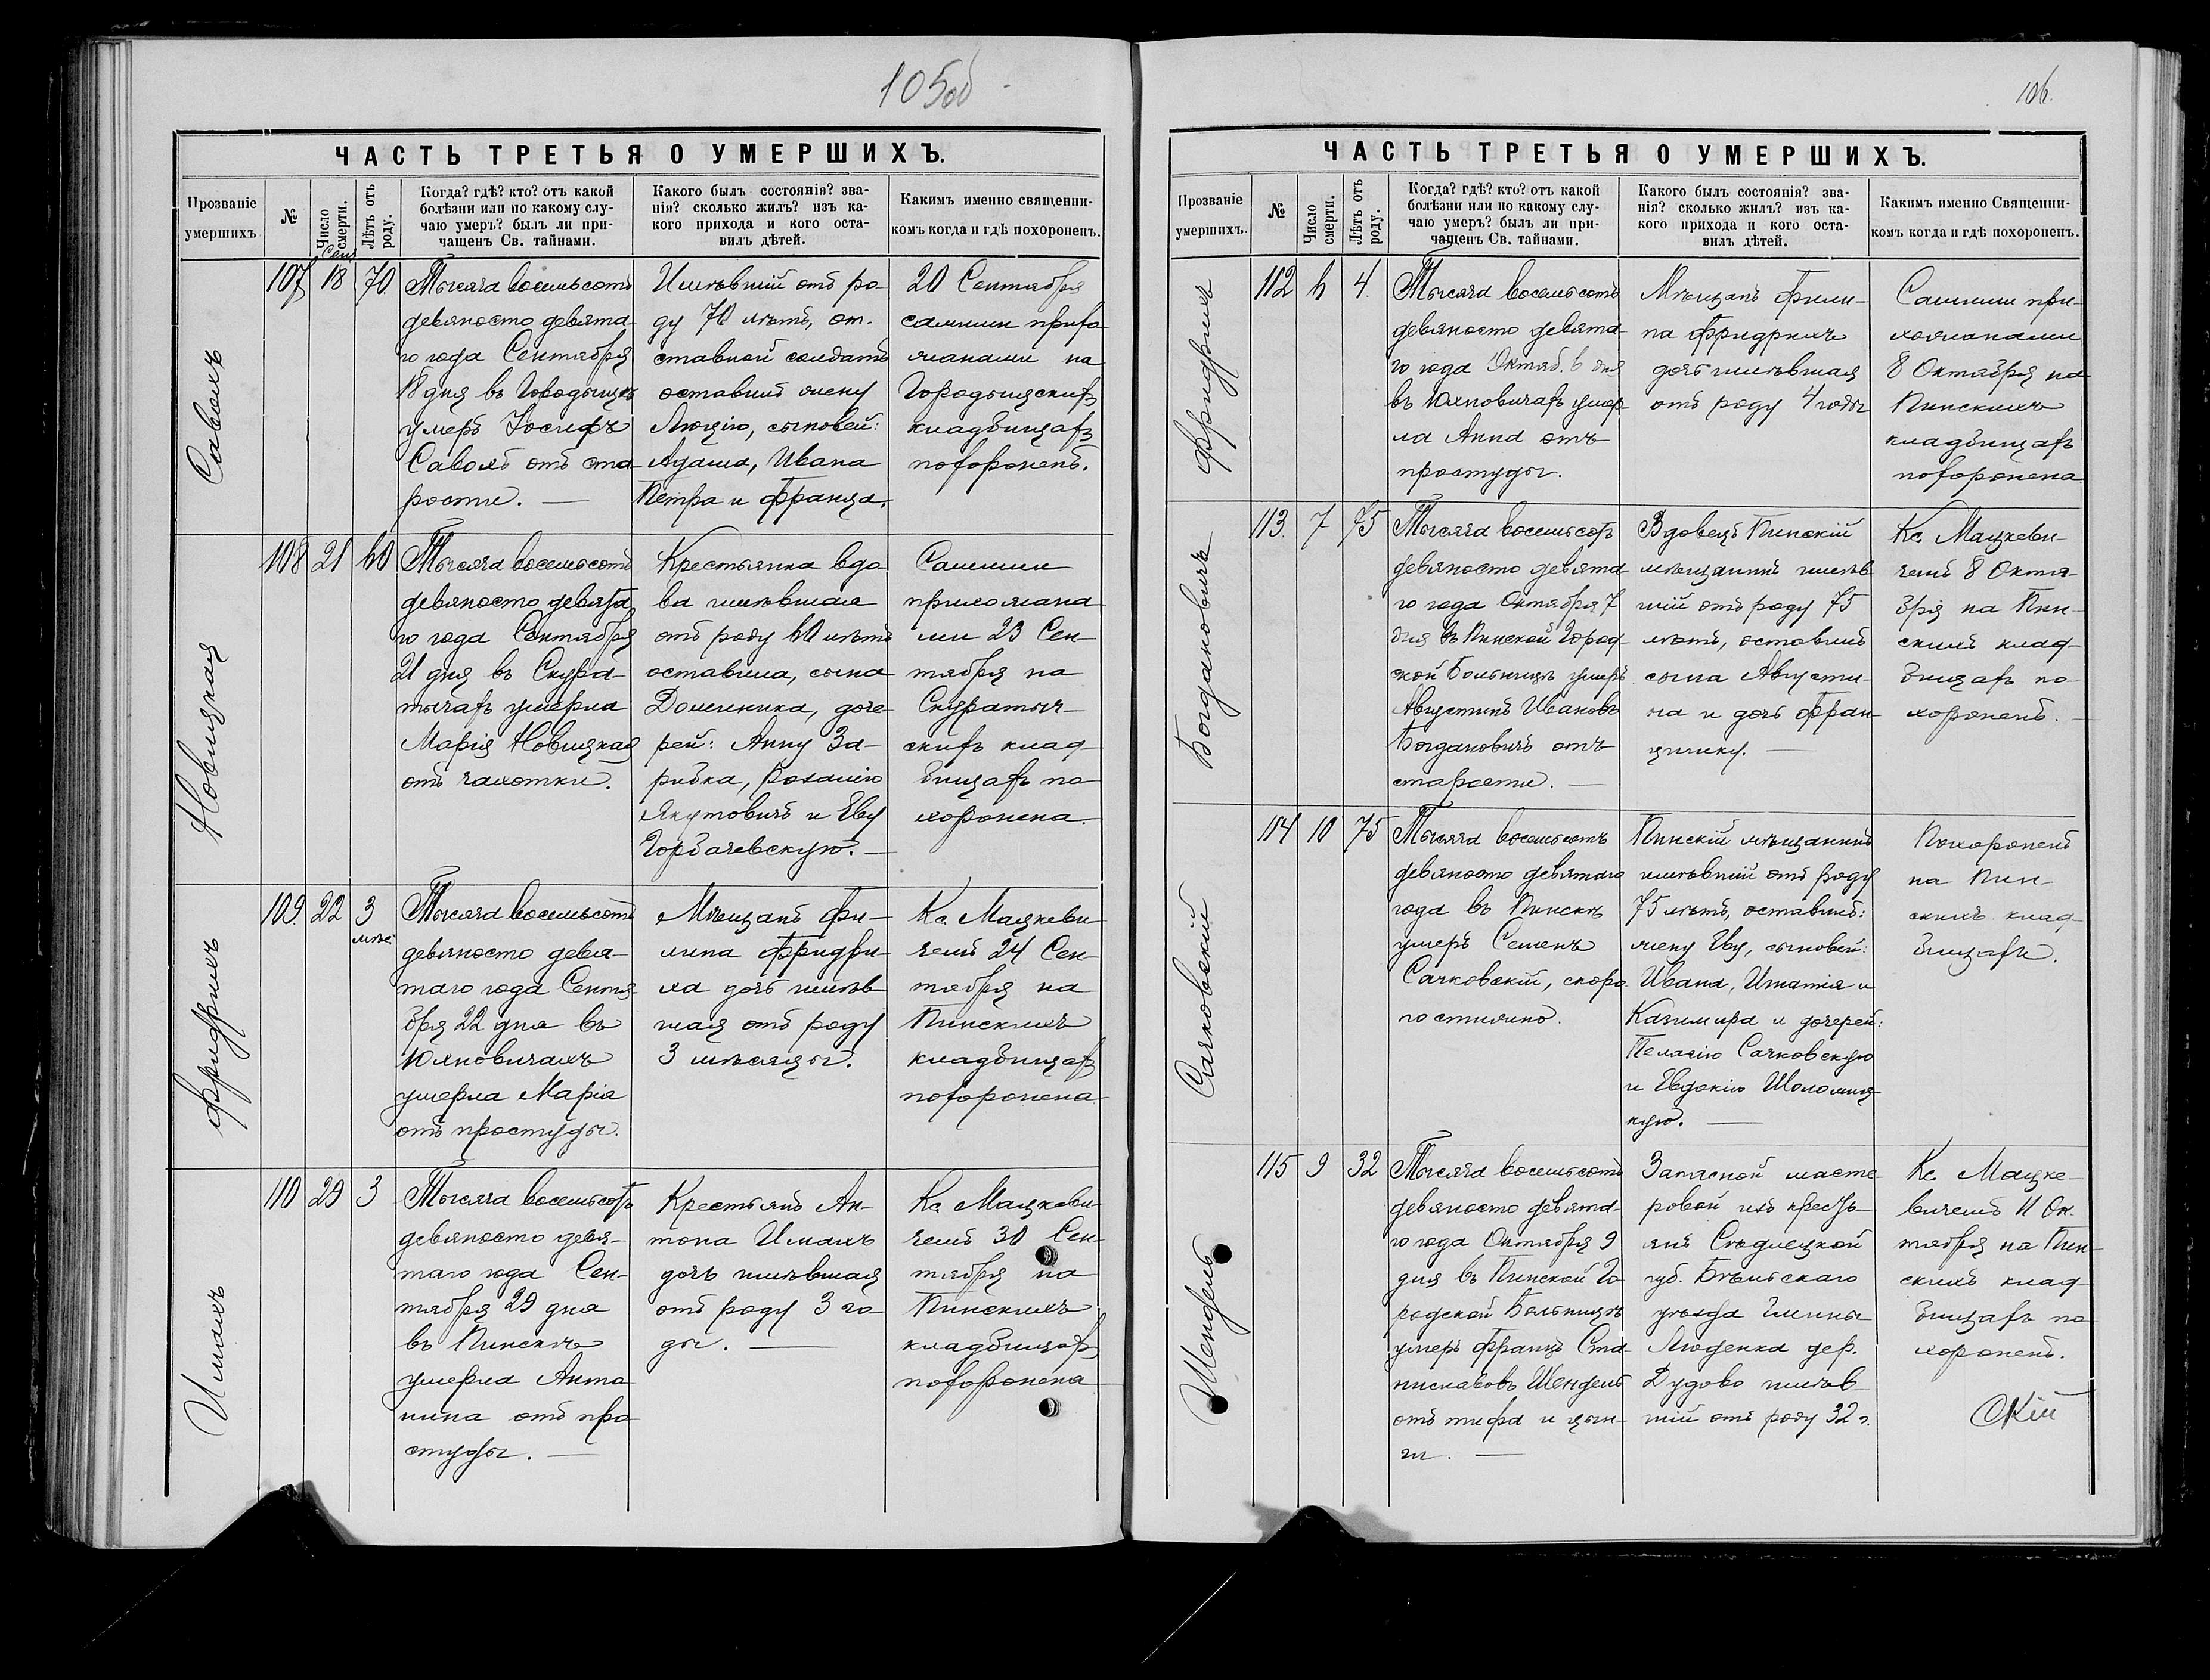 105об
ЧАСТЬ ТРЕТЬЯ О УМЕРШИХЪ.
Прозваніе умершихъ.
№
Число смерти.
Лѣтъ отъ роду.
Когда? гдѣ? кто? отъ какой
болѣзни или по какому слу-
чаю умеръ? былъ ли при-
чащенъ Св. тайнами.
Какого былъ состоянія? зва-
нія? сколько жилъ? изъ ка-
кого прихода и кого оста-
вилъ дѣтей.
Какимъ именно священни-
комъ когда и гдѣ похороненъ.
Савохъ
107
Сент
18
70.
Тысяча восемьсотъ
девяносто девята-
го года Сентября
18 дня въ Городыщѣ
умеръ Іосифъ
отъ ста
рости. —
Имѣвшій отъ ро-
ду 70 лѣтъ, от-
ставной солдатъ
оставивъ жену
Люцію, сыновей:
Адама, Ивана
Петра и Франца.
20 Сентября
самими прихо
жанами на
Городыщскихъ
кладбищахъ
похороненъ.
Новицкая
108
21
60
Тысяча восемьсотъ
девяносто девята
го года Сентября
21 дня въ Скура-
тычахъ умерла
Марія Новицкая
отъ чахотки.
Крестьянка вдо
ва имѣвшая
отъ роду 60 лѣтъ
оставила, сына
Доменика, доче
рей: Анну За-
рибка, Розалію
Якутовичъ и Еву
Горбачевскую. —
Самими
прихожана
ми 23 Сен-
тября на
Скуратыч-
скихъ клад-
бищахъ по
хоронена.
Фридрихъ
109.
22
3
мѣс
Тысяча восемьсотъ
девяносто девя-
таго года Сентя
бря 22 дня въ
Юхновичахъ
умерла Марія
отъ простуды.
Мѣщанъ Фи-
липа Фридри-
ха дочь имѣв
шая отъ роду
3 мѣсяцы.
Кс. Мацкеви
чемъ 24 Сен-
тября на
Пинскихъ
кладбищахъ
похоронена
Имахъ
110
29
3
Тысяча восемьсотъ
девяносто девя-
таго года Сен-
тября 29 дня
въ Пинскѣ
умерла Анто
нина отъ про
студы. —
Крестьянъ Ан-
тона Имахъ
дочь имѣвшая
отъ роду 3 го-
ды. —
Кс. Мацкеви-
чемъ 30 Сен-
тября на
Пинскихъ
кладбищахъ
похоронена
106.
ЧАСТЬ ТРЕТЬЯ О УМЕРШИХЪ.
Прозваніе умершихъ.
№
Число смерти.
Лѣтъ отъ роду.
Когда? гдѣ? кто? отъ какой
болѣзни или по какому слу-
чаю умеръ? былъ ли при-
чащенъ Св. тайнами.
Какого былъ состоянія? зва-
нія? сколько жилъ? изъ ка-
кого прихода и кого оста-
вилъ дѣтей.
Какимъ именно Священни-
комъ когда и гдѣ похороненъ.
Фридрихъ
112
6
4.
Тысяча восемьсотъ
девяносто девята-
го года Октяб. 6 дня
въ Юхновичахъ умер-
ла Анна отъ
простуды.
Мѣщанъ Фили-
па Фридрихъ
дочь имѣвшая
отъ роду 4 годы
Самими при-
хожанами
8 Октября на
Пинскихъ
кладбищахъ
похоронена
Богдановичъ
113.
7
75
Тысяча восемьсотъ
девяносто девята
го года Октября 7
дня въ Пинской Город-
ской Больницѣ умеръ
Августинъ Ивановъ
Богдановичъ отъ
старости. —
Вдовецъ Пинскій
мѣщанинъ имѣв
шій отъ роду 75
лѣтъ, оставивъ
сына Августи-
на и дочь Фран-
цишку. —
Кс. Мацкеви-
чемъ 8 Октя-
бря на Пин-
скихъ клад-
бищахъ по-
хороненъ.
Сачковскій
114
10
75
Тысяча восемьсотъ
девяносто девятаго
года въ Пинскѣ
умеръ Семенъ
Сачковскій, скоро
постижно.
Пинскій мѣщанинъ
имѣвшій отъ роду
75 лѣтъ, оставивъ:
жену Еву, сыновей:
Ивана, Игнатія и
Казимира и дочерей:
Пелагію Сачковскую
и Евдокію Шоломиц-
кую. —
Похороненъ
на Пин-
скихъ клад-
бищахъ.
Шендель
115
9
32
Тысяча восемьсотъ
девяносто девята-
го года Октября 9
дня въ Пинской Го
родской Больницѣ
умеръ Францъ Ста
ниславовъ Шендель
отъ тифа и цын-
ги. —
Запасной масте
ровой изъ кресть-
янъ Сѣдлецкой
губ. Бѣльскаго
уѣзда Гмины
Люденка дер.
Дудово имѣв
шій отъ роду 32 г.
Кс. Мацке-
вичемъ 11 Ок-
тября на Пин-
скихъ клад-
бищахъ по
хороненъ.